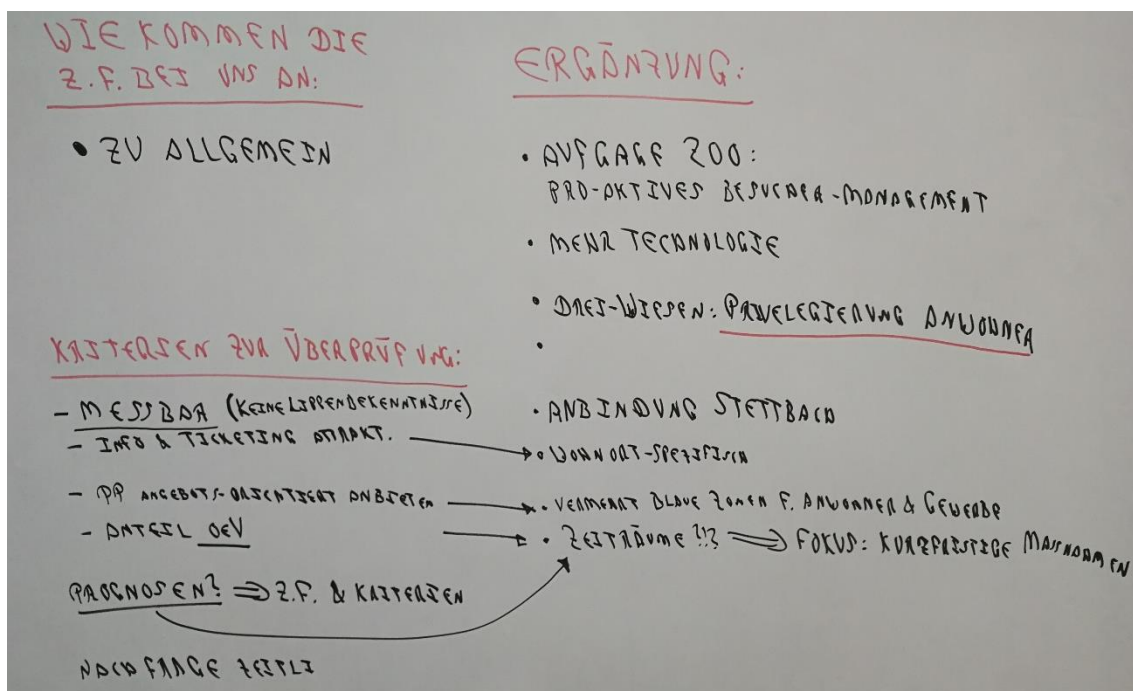 WIE KOMMEN DIE
Z.F. BEI UNS AN:
• ZU ALLGEMEIN
KRITERIEN ZUR ÜBERPRÜFUNG:
– MESSBAR (KEINE LIPPENBEKENNTNISSE)
– INFO & TICKETING ATTRAKT.
– PP ANGEBOTS-ORIENTIERT ANBIETEN
– ANTEIL OEV
PROGNOSEN? ⇒ Z.F. & KRITERIEN
NACHFRAGE ZEITLI
ERGÄNZUNG:
• AUFGAGE ZOO:
PRO-AKTIVES BESUCHER-MANAGEMENT
• MEHR TECHNOLOGIE
• DREI-WIESEN: PRIVELEGIERUNG ANWOHNER
•
• ANBINDUNG STETTBACH
• WOHNORT-SPEZIFISCH
• VERMEHRT BLAUE ZONEN F. ANWOHNER & GEWERBE
• ZEITRÄUME ?!? ⇒ FOKUS: KURZFRISTIGE MASSNAHMEN